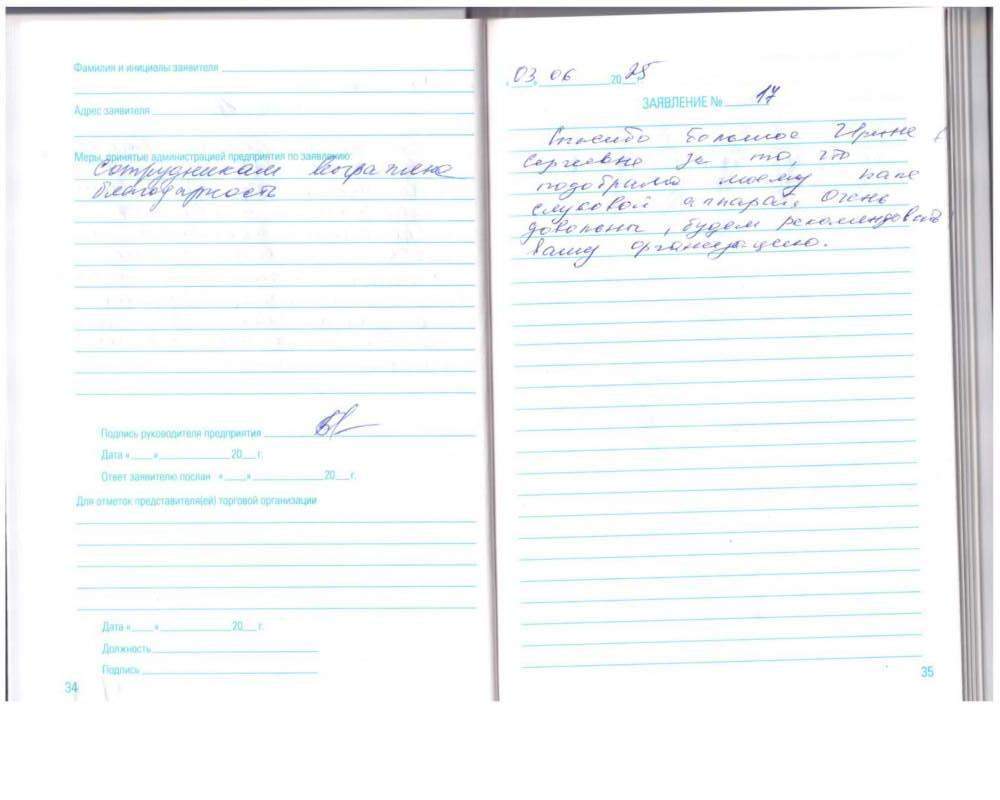 Фамилия и инициалы заявителя
Адрес заявителя
Меры, принятые администрацией предприятия по заявлению:
Сотрудникам
благодарность
Подпись руководителя предприятия
Дата « » 20 г.
Ответ заявителю послан « » 20 г.
Для отметок представителя(ей) торговой организации
Дата « » 20 г.
Должность
Подпись
34
03 06 20 25
ЗАЯВЛЕНИЕ № 17
Спасибо большое Ирине
Сергеевне за то, что
подобрали моему папе
слуховой аппарат. Очень
довольны, будем рекомендовать
вашу организацию.
35